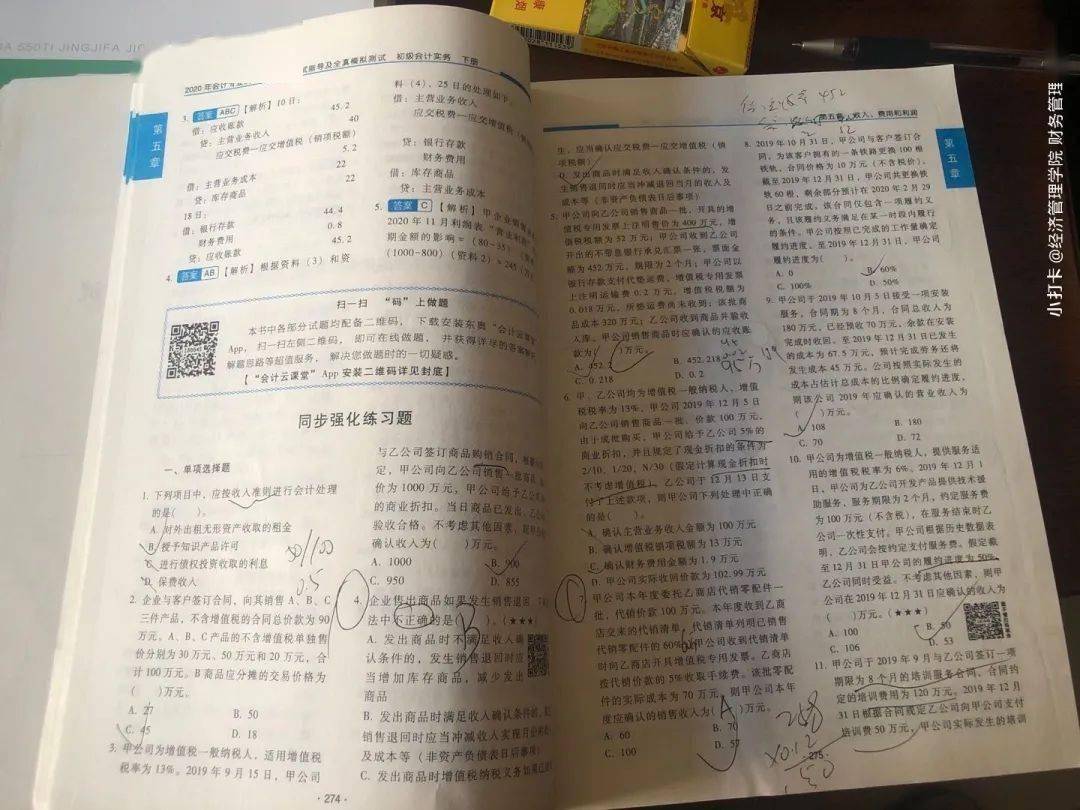 SSOTI JINGJIFA JIC
2020年会计专业
试指导及全真模拟测试 初级会计实务 下册
第五章
3. 答案 ABC 【解析】10日:
借:应收账款 45.2
贷:主营业务收入 40
应交税费—应交增值税(销项税额)
5.2
借:主营业务成本 22
贷:库存商品 22
18日:
借:银行存款 44.4
财务费用 0.8
贷:应收账款 45.2
4. 答案 AB 【解析】根据资料(3)和资
料(4),25日的处理如下:
借:主营业务收入
应交税费—应交增值税(销
贷:银行存款
财务费用
借:库存商品
贷:主营业务成本
5. 答案 C 【解析】甲企业销售
2020年11月利润表“营业利润”
期金额的影响=(80-35)(资料
(1000-800)(资料2)=245(万
扫一扫 “码”上做题
本书中各部分试题均配备二维码, 下载安装东奥“会计云课堂”
App, 扫一扫左侧二维码, 即可在线做题, 并获得详尽的答案解析、
解题思路等超值服务, 解决您做题时的一切疑惑。
【“会计云课堂”App安装二维码详见封底】
同步强化练习题
一、单项选择题
1. 下列项目中,应按收入准则进行会计处理
的是( )。
A. 对外出租无形资产收取的租金
B. 授予知识产品许可
C. 进行债权投资收取的利息
D. 保费收入
2. 企业与客户签订合同,向其销售A、B、C
三件产品,不含增值税的合同总价款为90
万元。A、B、C产品的不含增值税单独售
价分别为30万元、50万元和20万元,合
计100万元。B商品应分摊的交易价格为
( )万元。
A. 27 B. 50
C. 45 D. 18
3. 甲公司为增值税一般纳税人,适用增值税
税率为13%。2019年9月15日,甲公司
与乙公司签订商品购销合同,
定,甲公司向乙公司销售一批商品
价为1000万元,甲公司给予乙公司
的商业折扣。当日商品已发出,乙公
验收合格。不考虑其他因素,
确认收入为( )万元。
A. 1000 B. 900
C. 950 D. 855
4. 企业售出商品如果发生销售退回,
法中不正确的是( )。(★★★)
A. 发出商品时不满足收入确
认条件的,发生销售退回时应
当增加库存商品,减少发出
商品
B. 发出商品时满足收入确认条件的,
销售退回时应当冲减收入实现月份的收入
及成本等(非资产负债表日后事项)
C. 发出商品时增值税纳税义务如果已
· 274 ·
第五章 收入、费用和利润
第五章
生,应当确认应交税费—应交增值税(销
项税额)
D. 发出商品时满足收入确认条件的,发
生销售退回时应当冲减退回当月的收入及
成本等(非资产负债表日后事项)
5. 甲公司向乙公司销售商品一批,开具的增
值税专用发票上注明售价为400万元,增
值税税额为52万元;甲公司收到乙公司
开出的不带息银行承兑汇票一张,票面金
额为452万元,期限为2个月;甲公司以
银行存款支付代垫运费,增值税专用发票
上注明运输费0.2万元,增值税税额为
0.018万元,所垫运费尚未收到;该批商
品成本320万元;乙公司收到商品并验收
入库。甲公司销售商品时应确认的应收账
款为( )万元。
A. 452.2 B. 452.218
C. 0.218 D. 0.2
6. 甲、乙公司均为增值税一般纳税人,增值
税税率为13%。甲公司2019年12月5日
向乙公司销售商品一批,价款100万元,
由于成批购买,甲公司给予乙公司5%的
商业折扣,并且规定了现金折扣的条件为
2/10,1/20,N/30(假定计算现金折扣时
不考虑增值税)。乙公司于12月13日支
付了上述款项,则甲公司下列处理中正确
的是( )。
A. 确认主营业务收入金额为100万元
B. 确认增值税销项税额为13万元
C. 确认财务费用金额为1.9万元
D. 甲公司实际收回价款为102.99万元
7. 甲公司本年度委托乙商店代销零配件一
批,代销价款100万元。本年度收到乙商
店交来的代销清单,代销清单列明已销售
代销零配件的60%,甲公司收到代销清单
时向乙商店开具增值税专用发票。乙商店
按代销价款的5%收取手续费。该批零配
件的实际成本为70万元,则甲公司本年
度应确认的销售收入为( )万元。
A. 60 B. 70
C. 100 D. 57
8. 2019年10月31日,甲公司与客户签订合
同,为该客户拥有的一条铁路更换100根
铁轨,合同价格为10万元(不含税价)。
截至2019年12月31日,甲公司共更换铁
轨60根,剩余部分预计在2020年2月29
日之前完成。该合同仅包含一项履约义
务,且该履约义务满足在某一时段内履行
的条件。甲公司按照已完成的工作量确定
履约进度。至2019年12月31日,甲公司
履约进度为( )。
A. 0 B. 60%
C. 100% D. 50%
9. 甲公司于2019年10月5日接受一项安装
服务,合同期为8个月,合同总收入为
180万元,已经预收70万元,余款在安装
完成时收回。至2019年12月31日已发生
的成本为67.5万元,预计完成劳务还将
发生成本45万元。公司按照实际发生的
成本占估计总成本的比例确定履约进度,
则该公司2019年应确认的营业收入为
( )万元。
A. 108 B. 180
C. 70 D. 72
10. 甲公司为增值税一般纳税人,提供服务适
用的增值税税率为6%。2019年12月1
日,甲公司为乙公司开发产品提供技术援
助服务,服务期限为2个月,约定服务费
为100万元(不含税),在服务结束时乙公
司一次性支付。甲公司根据历史数据表
明,乙公司会按约定支付服务费。假定截
至12月31日甲公司的履约进度为50%,
乙公司同时受益。不考虑其他因素,则甲
公司在2019年12月31日应确认的收入为
( )万元。(★★★)
A. 100 B. 50
C. 106 D. 53
11. 甲公司于2019年9月与乙公司签订一项
期限为8个月的培训服务合同,合同约
定的培训费用为120万元。2019年12月
31日根据合同或定乙公司向甲公司支付
培训费50万元,甲公司实际发生的培训
·275·
452
50/100
0.5
B
A
小打卡@经济管理学院 财务管理